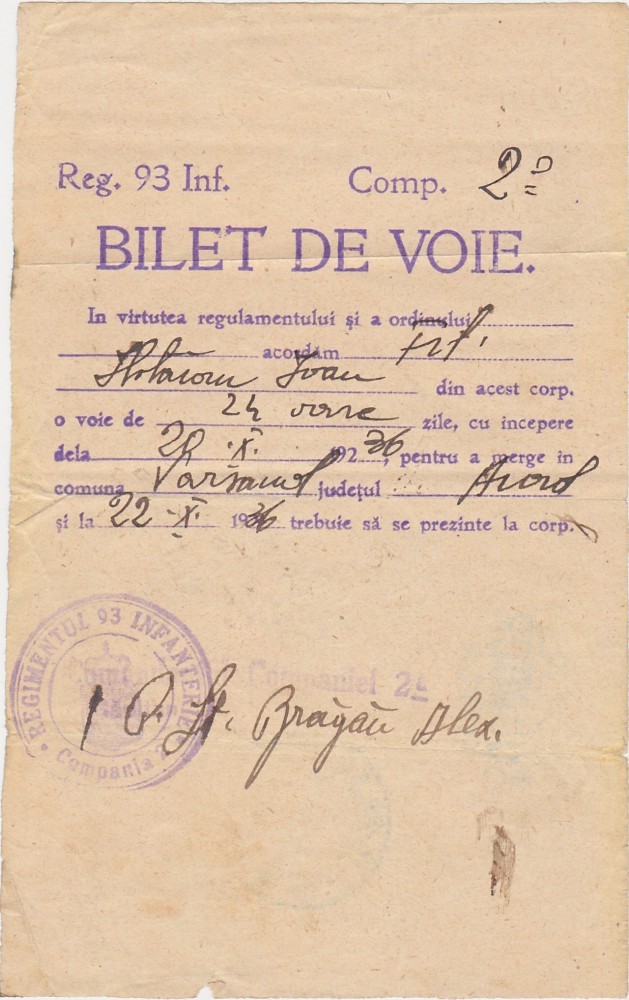 Reg. 93 Inf. Comp. 2ª
BILET DE VOIE.
In virtutea regulamentului și a ordinului
acordăm
Ioan din acest corp.
o voie de 24 oare zile, cu începere
dela 20 .X. 192 36, pentru a merge în
comuna județul Arad
și la 22 -X. 1936 trebuie să se prezinte la corp.
REGIMENTUL 93 INFANTERIE
Companiei 2ª
Compania
St. Brăgău Alex.